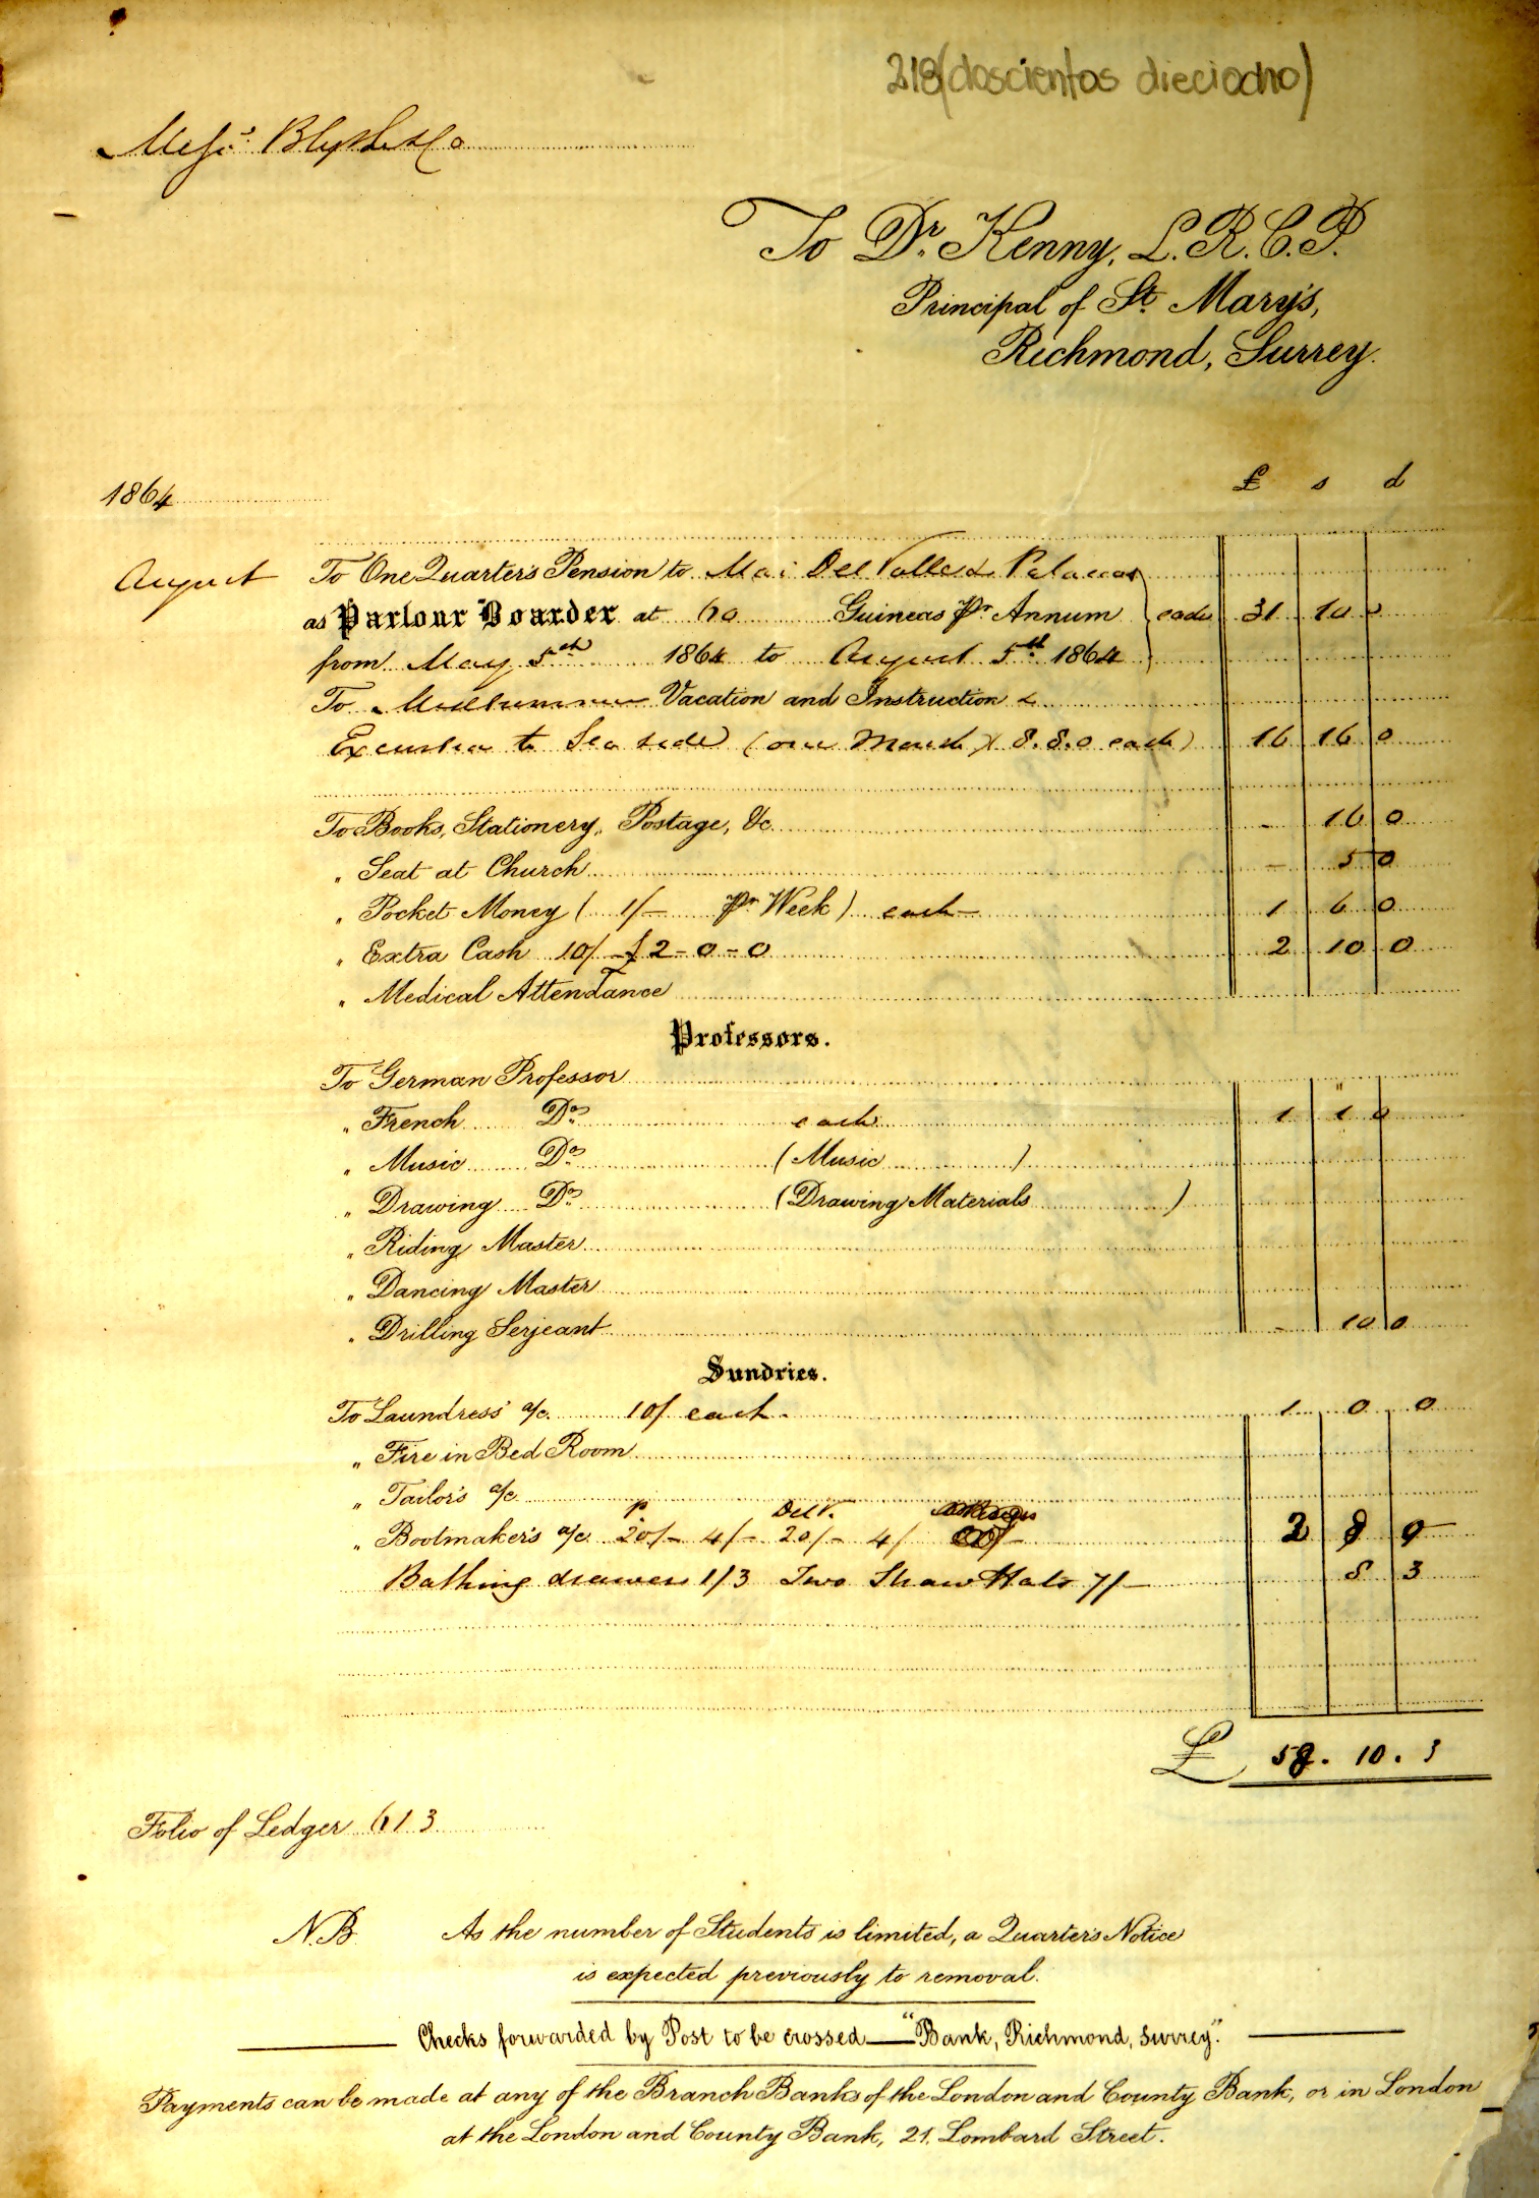 218 (doscientos dieciocho)
Messrs. Blyth & Co
To Dr. Kenny, L.R.C.P.
Principal of St. Mary's,
Richmond, Surrey.
£ s d
1864
August To One Quarter's Pension to Del Valle & Palacios
as Parlour Boarder at 60 Guineas Pr. Annum each 31 10 0
from May 5th 1864 to August 5th 1864
To Midsummer Vacation and Instruction &
Excursion to Sea side (one Month 8.8.0 each) 16 16 0
To Books, Stationery, Postage, &c. - 16 0
" Seat at Church - 5 0
" Pocket Money ( 1/- pr. Week) each 1 6 0
" Extra Cash 10/- £2-0-0 2 10 0
" Medical Attendance
Professors.
To German Professor
" French Do. each 1 1 0
" Music Do. (Music )
" Drawing Do. (Drawing Materials )
" Riding Master
" Dancing Master
" Drilling Serjeant - 10 0
Sundries.
To Laundress' a/c. 10/ each. 1 0 0
" Fire in Bed Room
" Tailor's a/c
P. Del V.
" Bootmaker's a/c 20/- 4/- 20/- 4/ 2 8 0
Bathing drawers 1/3 Two Straw Hats 7/- 8 3
£ 58. 10. 3
Folio of Ledger 613
N.B. As the number of Students is limited, a Quarter's Notice
is expected previously to removal.
Checks forwarded by Post to be crossed — "Bank, Richmond, Surrey."
Payments can be made at any of the Branch Banks of the London and County Bank, or in London
at the London and County Bank, 21, Lombard Street.